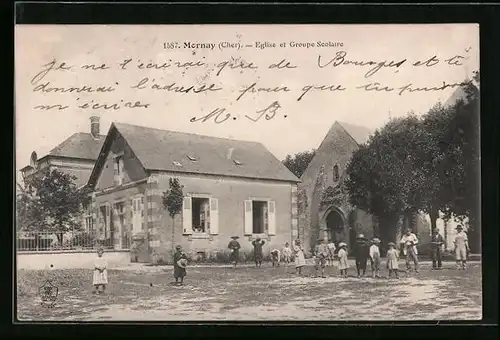 1587. Mornay (Cher). — Eglise et Groupe Scolaire
Je ne t'écrirai que de Bourges et te
donnerai l'adresse pour que tu puisses
m'écrire M. B.